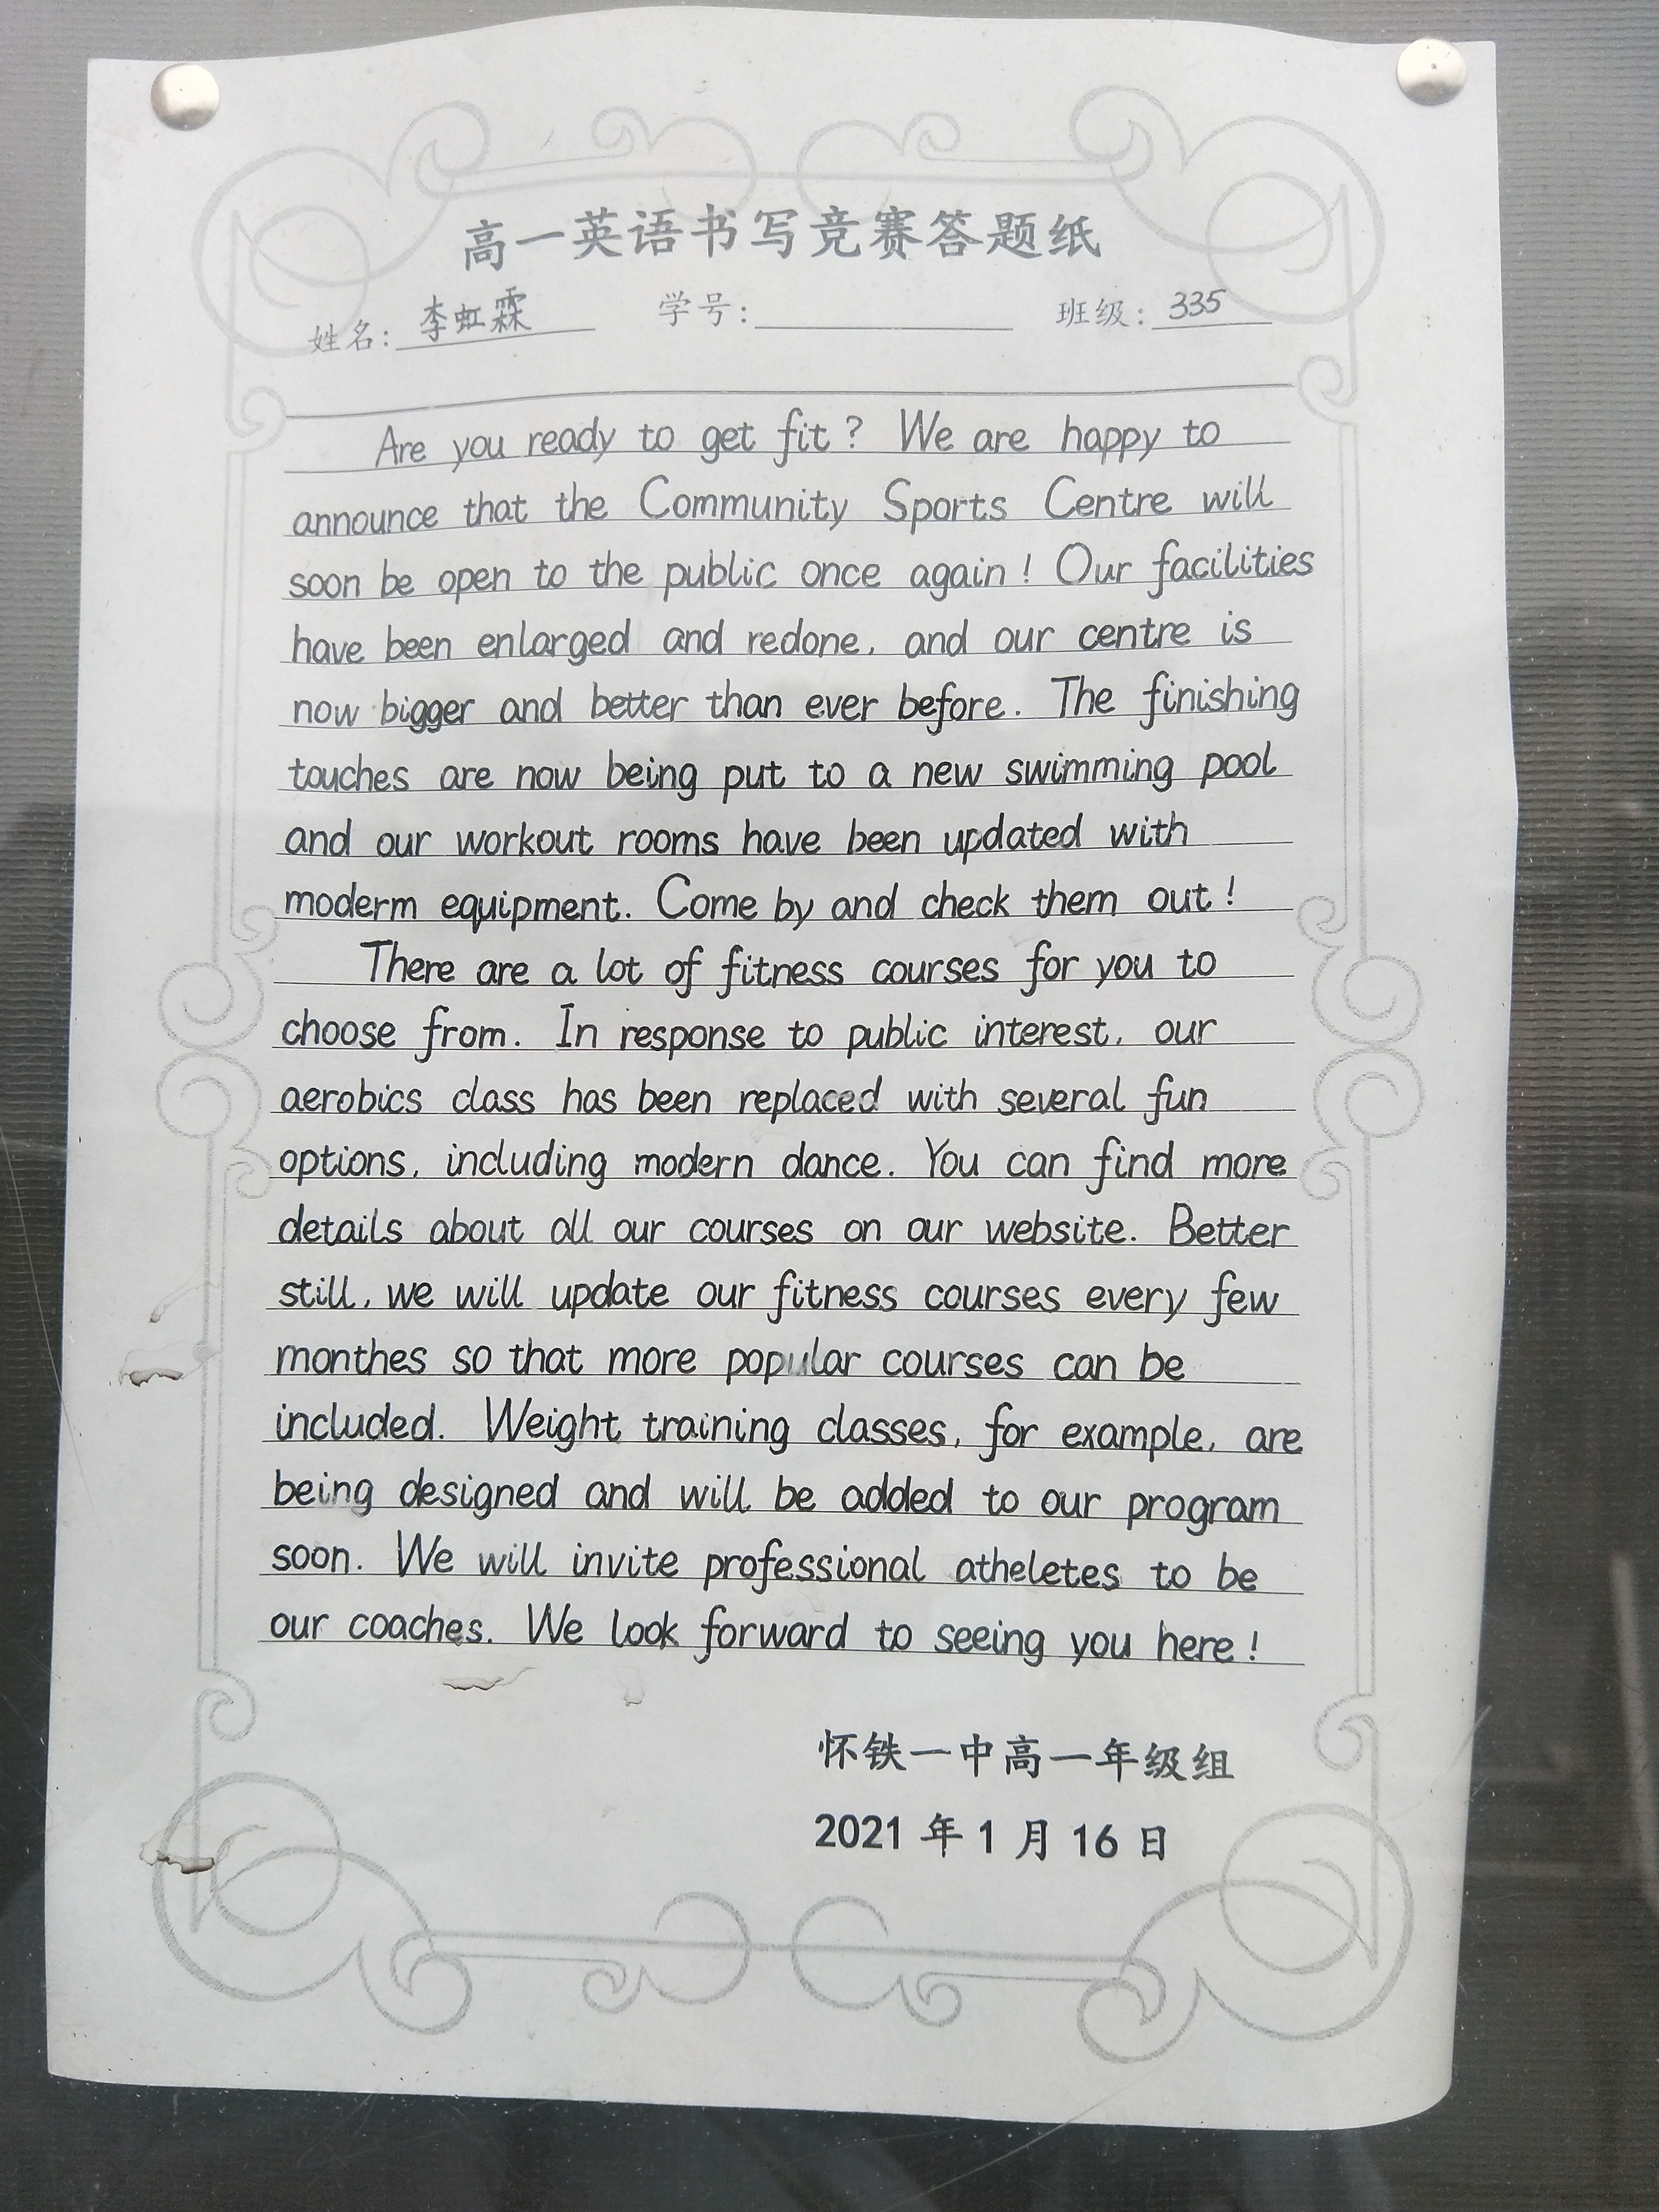 高一英语书写竞赛答题纸
姓名: 李虹霖 学号: 班级: 335
Are you ready to get fit? We are happy to
announce that the Community Sports Centre will
soon be open to the public once again! Our facilities
have been enlarged and redone, and our centre is
now bigger and better than ever before. The finishing
touches are now being put to a new swimming pool
and our workout rooms have been updated with
moderm equipment. Come by and check them out!
There are a lot of fitness courses for you to
choose from. In response to public interest, our
aerobics class has been replaced with several fun
options, including modern dance. You can find more
details about all our courses on our website. Better
still, we will update our fitness courses every few
monthes so that more popular courses can be
included. Weight training classes, for example, are
being designed and will be added to our program
soon. We will invite professional atheletes to be
our coaches. We look forward to seeing you here!
怀铁一中高一年级组
2021 年 1 月 16 日